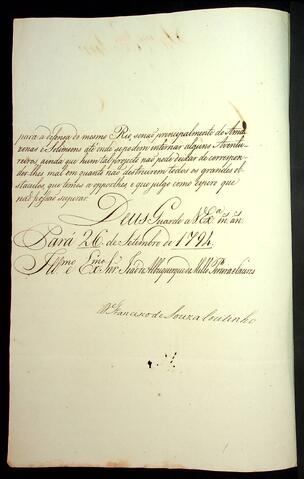 para a defensa do mesmo Rio, senaõ principalmente do Ama-
zonas e Solimoens até onde sepodem internar alguns Aventu-
reiros ainda que hum tal projecto naõ pode deixar de correspon-
der-lhes mal em quanto naõ destruirem todos os grandes obs-
taculos que temos a oppor lhes e que julgo e espero que
naõ possaõ superar.
Deos Guarde a V. Ex.ª m. an.
Pará 26 de Setembro de 1794.
Ill.mo e Ex.mo Snr. João de Albuquerque de Mello Pereira e Caceres
D. Francisco de Souza Coutinho